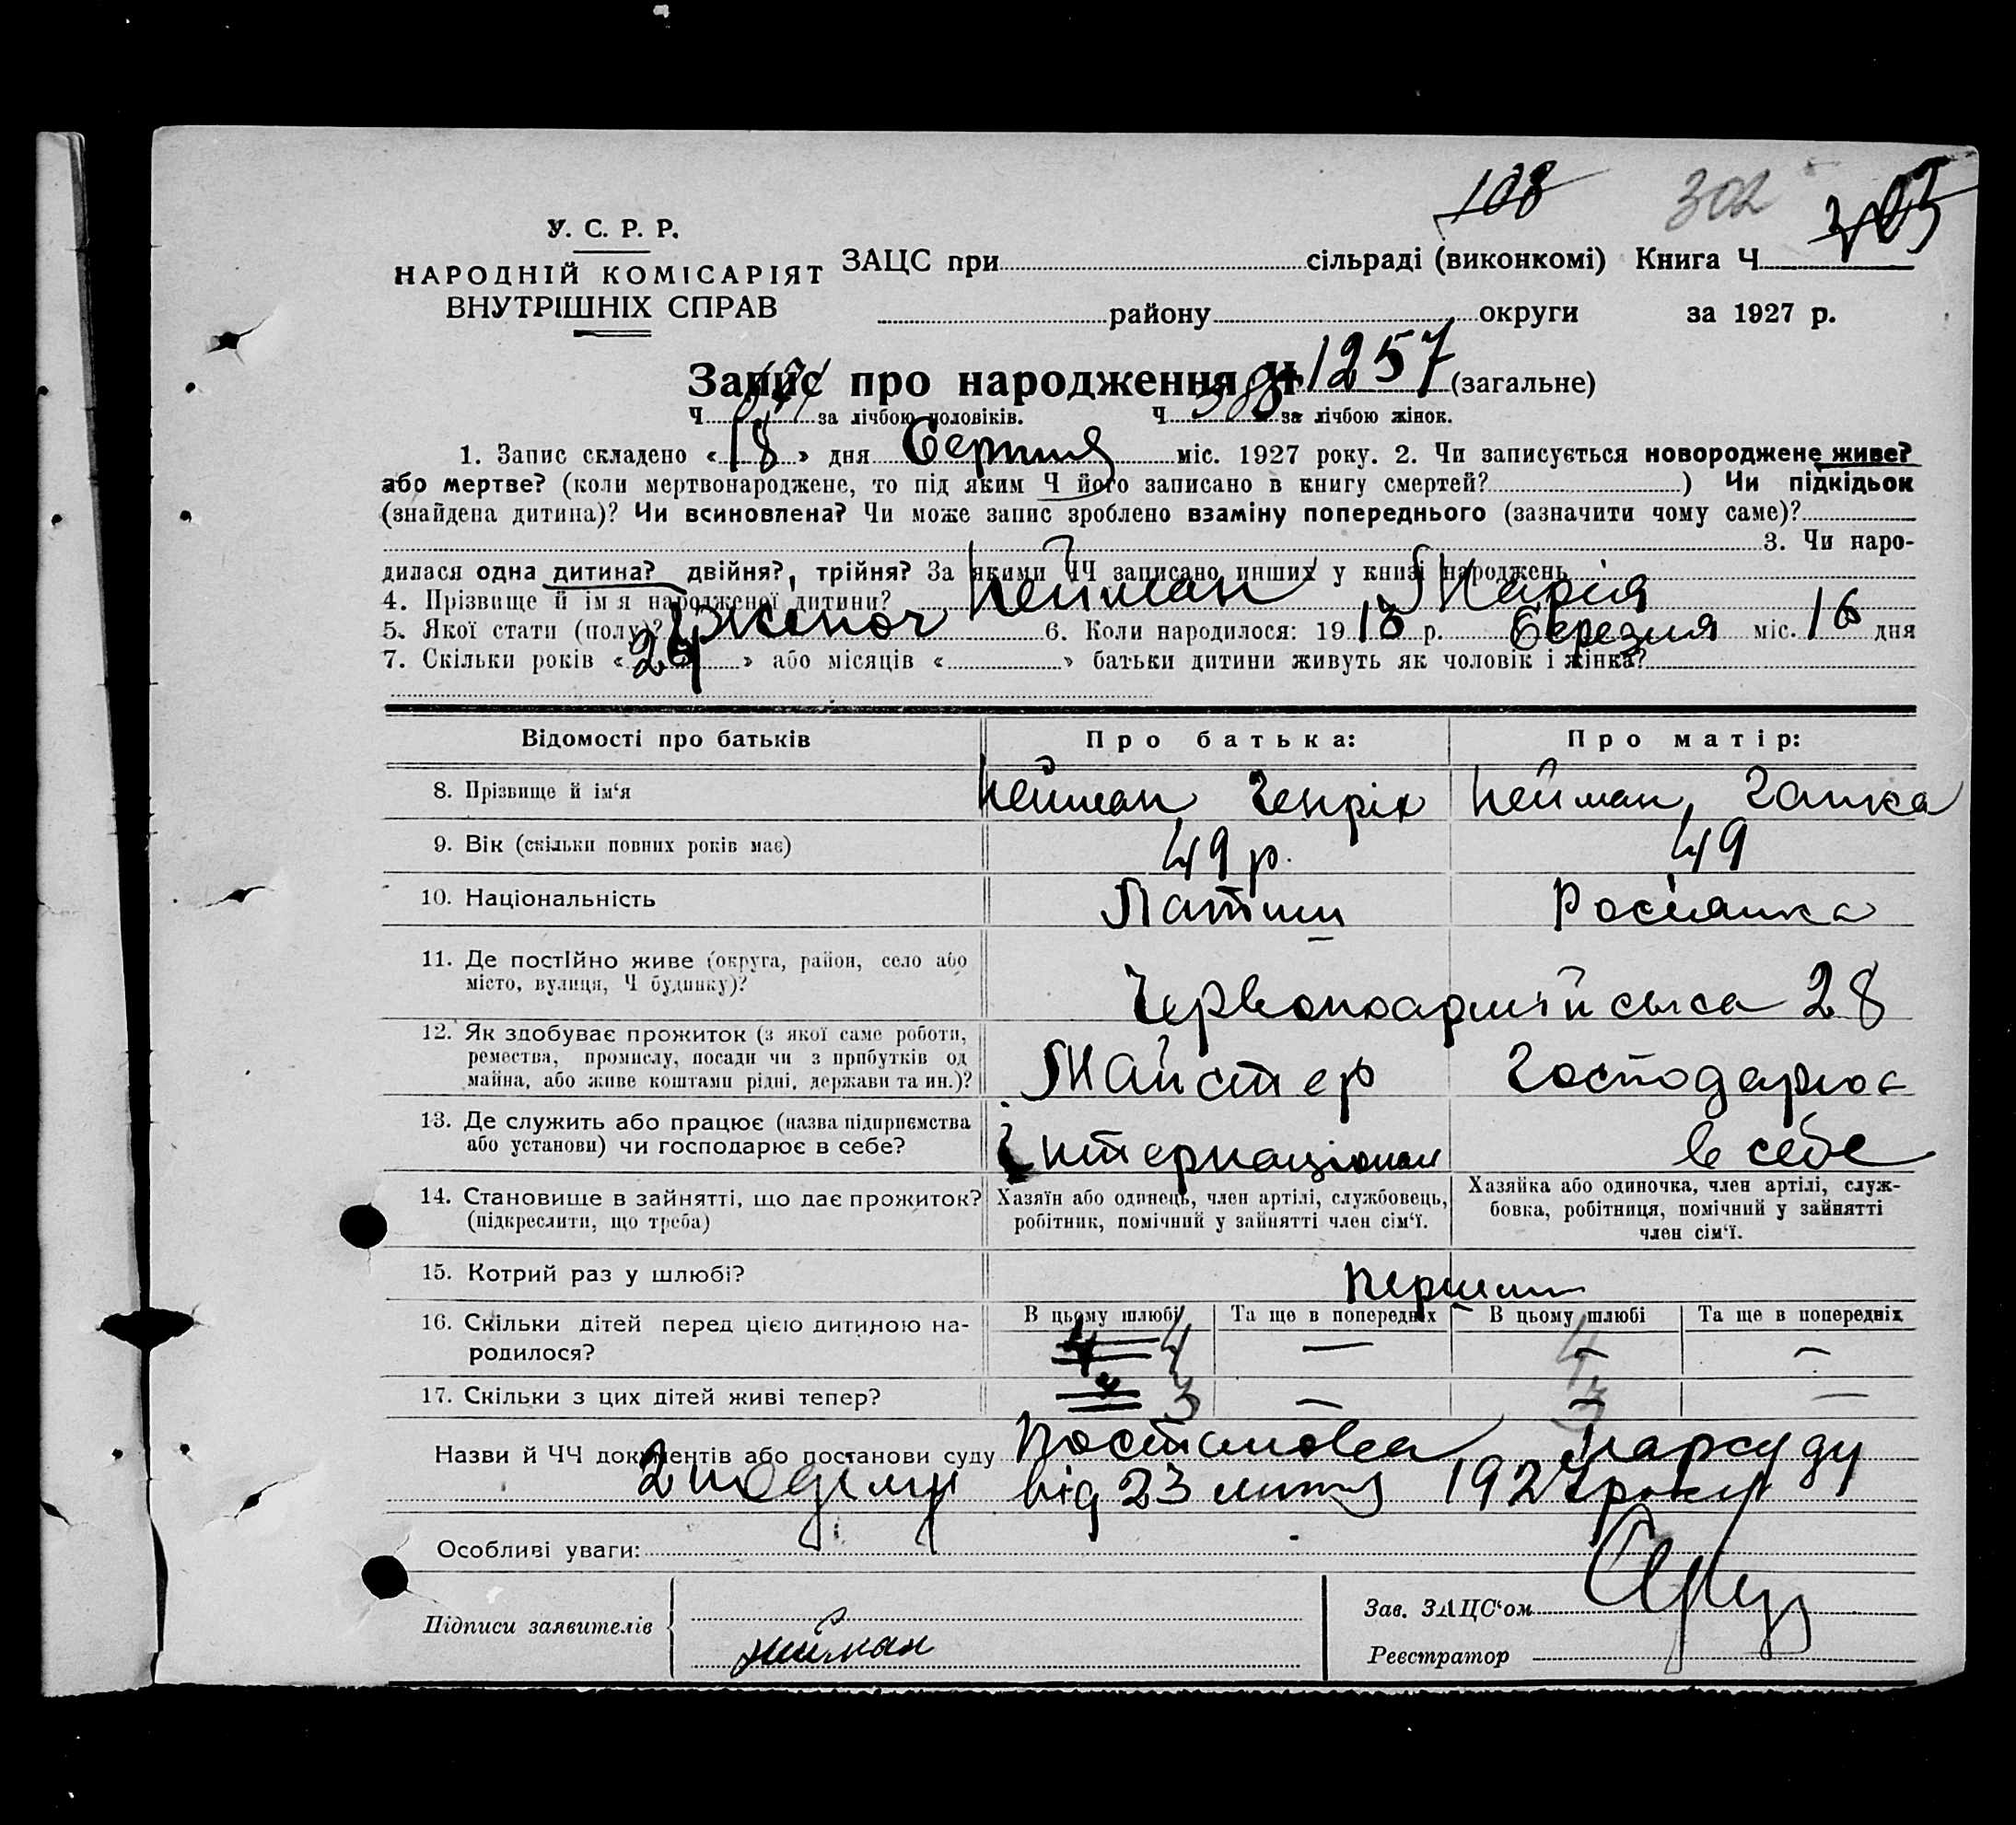 108 302 305
У. С. Р. Р.
НАРОДНІЙ КОМІСАРІЯТ
ВНУТРІШНІХ СПРАВ
ЗАЦС при сільраді (виконкомі) Книга Ч
району округи за 1927 р.
Запис про народження Ч 1257 (загальне)
Ч за лічбою чоловіків. Ч 388 за лічбою жінок.
1. Запис складено « 18 » дня Серпня міс. 1927 року. 2. Чи записується новороджене живе?
або мертве? (коли мертвонароджене, то під яким Ч його записано в книгу смертей? ) Чи підкідьок
(знайдена дитина)? Чи всиновлена? Чи може запис зроблено взаміну попереднього (зазначити чому саме)?
3. Чи наро-
дилася одна дитина? двійня?, трійня? За якими ЧЧ записано инших у книзі народжень
4. Прізвище й ім'я народженої дитини? Нейман Марія
5. Якої стати (полу)? жіноч 6. Коли народилося: 19 18 р. Березня міс. 16 дня
7. Скільки років « 24 » або місяців « » батьки дитини живуть як чоловік і жінка?
Відомості про батьків Про батька: Про матір:
8. Прізвище й ім'я Нейман Генріх Нейман Ганка
9. Вік (скільки повних років має) 49 р. 49
10. Національність Латиш Росіянка
11. Де постійно живе (округа, район, село або
місто, вулиця, Ч будинку)? Червоноармійська 28
12. Як здобуває прожиток (з якої саме роботи,
ремества, промислу, посади чи з прибутків од
майна, або живе коштами рідні, держави та ин.)? Майстер Господарює
13. Де служить або працює (назва підприємства
або установи) чи господарює в себе? Інтернаціонал в себе
14. Становище в зайнятті, що дає прожиток?
(підкреслити, що треба)
Хазяїн або одинець, член артілі, службовець,
робітник, помічний у зайнятті член сім'ї.
Хазяйка або одиночка, член артілі, служ-
бовка, робітниця, помічний у зайнятті
член сім'ї.
15. Котрий раз у шлюбі? перший
16. Скільки дітей перед цією дитиною на-
родилося?
В цьому шлюбі Та ще в попередніх В цьому шлюбі Та ще в попередніх
4 — 4 —
17. Скільки з цих дітей живі тепер? 3 — 3 —
Назви й ЧЧ документів або постанови суду Постанова Нарсуду
від 23 лютя 1927 року
Особливі уваги:
Підписи заявителів
Нейман
Зав. ЗАЦС'ом
Реєстратор